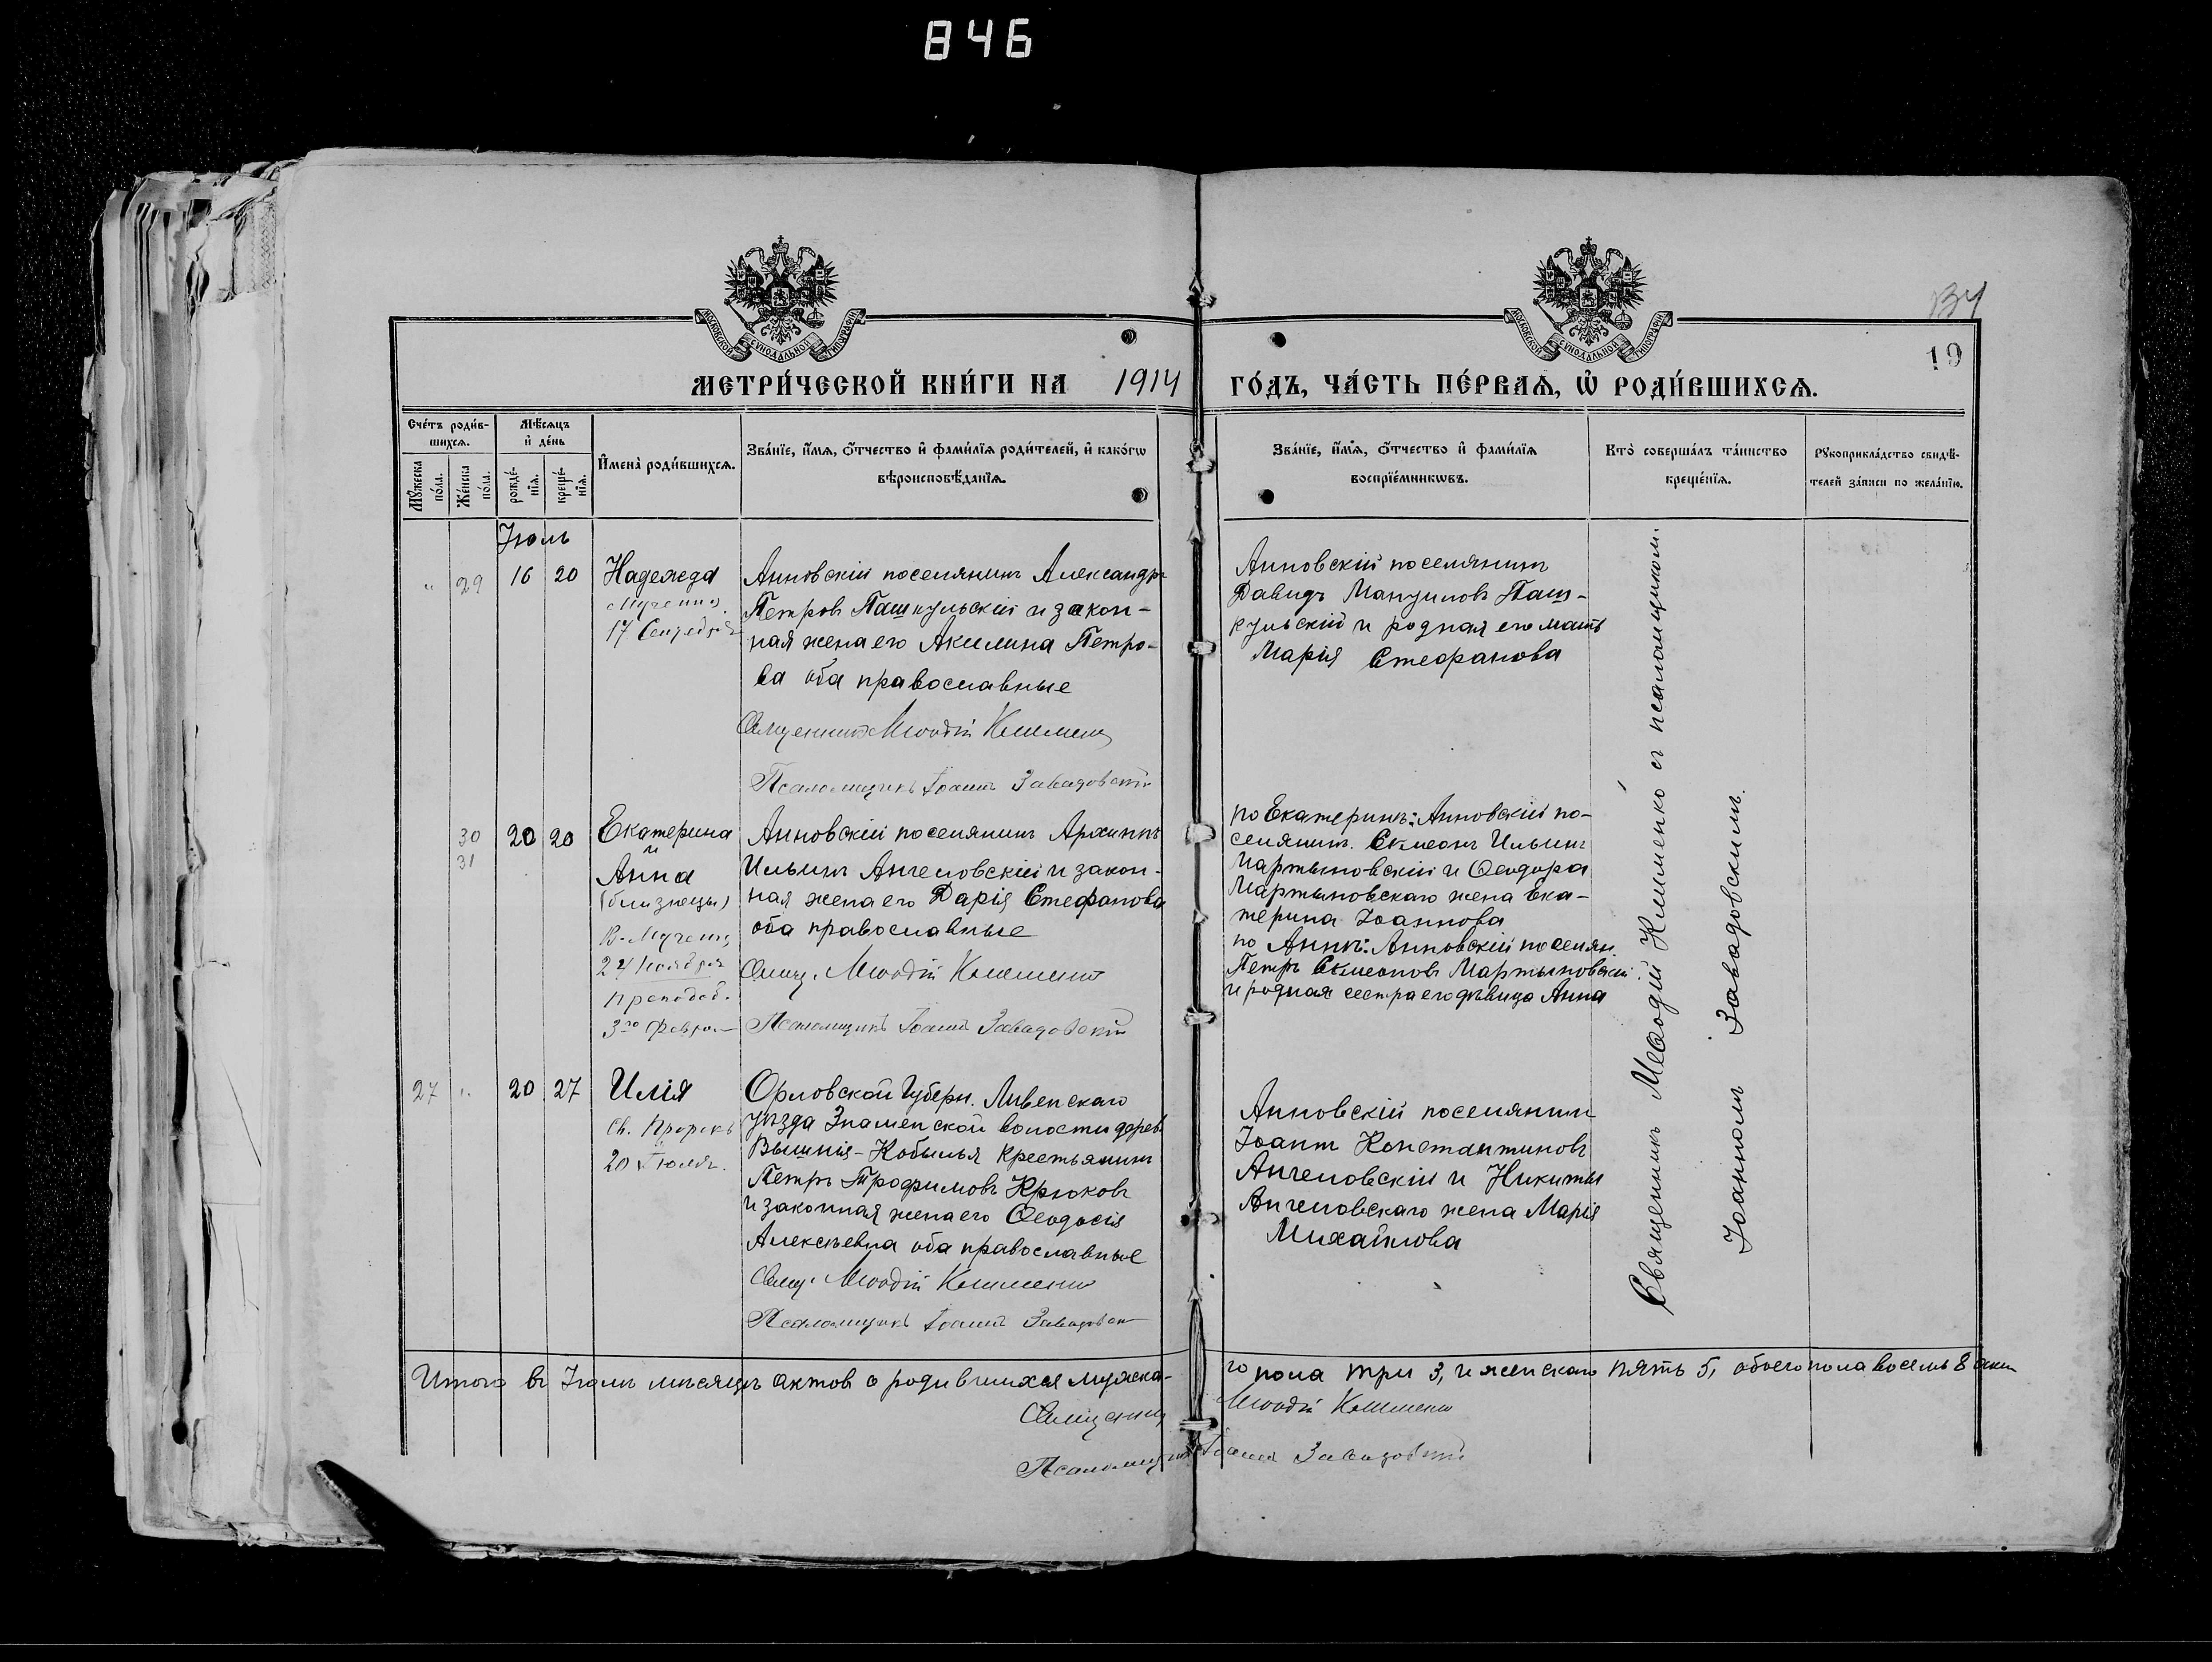 846
134
19
МОСКОВСКОЙ СУНОДАЛЬНОЙ ТИПОГРАФІИ
МОСКОВСКОЙ СУНОДАЛЬНОЙ ТИПОГРАФІИ
МЕТРИ́ЧЕСКОЙ КНИ́ГИ НА 1914 ГО́ДЪ, ЧА́СТЬ ПЕ́РВАѦ, Ѡ҆ РОДИ́ВШИХСѦ.
Сче́тъ роди́в-
шихсѧ.
Мѣ́сѧцъ
и҆ де́нь
Мꙋ́жеска
по́ла.
Же́нска
по́ла.
рожде́-
нїѧ.
креще́-
нїѧ.
И҆мена̀ роди́вшихсѧ.
Зва́нїе, и҆́мѧ, ѻ҆́тчество и҆ фами́лїѧ роди́телей, и҆ како́гѡ
вѣроисповѣ́данїѧ.
Зва́нїе, и҆́мѧ, ѻ҆́тчество и҆ фами́лїѧ
воспрїе́мникѡвъ.
Кто̀ соверша́лъ та́инство
креще́нїѧ.
Рꙋкоприкла́дство свидѣ́-
телей за́писи по жела́нїю.
Іюль
" 29 16 20 Надежда
Мучениц.
17 Сентября
Анновскій поселянинъ Александръ
Петровъ Пашкульскій и закон-
ная жена его Акилина Петро-
ва оба православные
Священникъ Меѳодій Клименко
Псаломщикъ Іоаннъ Завадовскій
Анновскій поселянинъ
Давидъ Мануиловъ Паш-
кульскій и родная его мать
Марія Стефанова
30
31
20 20 Екатерина
и
Анна
(близнецы)
В-Мучениц
24 Ноября
преподоб.
3го Феврал
Анновскій поселянинъ Архиппъ
Ильинъ Ангеловскій и закон-
ная жена его Дарія Стефанова
оба православные
Свящ. Меѳодій Клименко
Псаломщикъ Іоаннъ Завадовскій
по Екатеринѣ: Анновскій по-
селянинъ Симеонъ Ильинъ
Мартыновскій и Ѳеодора
Мартыновскаго жена Ека-
терина Іоаннова
по Аннѣ: Анновскій поселян.
Петръ Симеоновъ Мартыновскій
и родная сестра его дѣвица Анна
27 " 20 27 Илія
Св. Пророкъ
20 Іюля.
Орловской Губерн. Ливенскаго
уѣзда Знаменской волости дерев.
Вышнія-Кобылья крестьянинъ
Петръ Трофимовъ Крюковъ
и законная жена его Ѳеодосія
Алексѣевна оба православные
Свящ. Меѳодій Клименко
Псаломщикъ Іоаннъ Завадовскій
Анновскій поселянинъ
Іоаннъ Константиновъ
Ангеловскій и Никиты
Ангеловскаго жена Марія
Михайлова
Священникъ Меѳодій Клименко съ псаломщиком
Іоанномъ Завадовскимъ.
Итого въ Іюлѣ мѣсяцѣ актов о родившихся мужска-
го пола три 3, и женскаго пять 5, обоего пола восемь 8
Священник Меѳодій Клименко
Псаломщикъ Іоаннъ Завадовскій